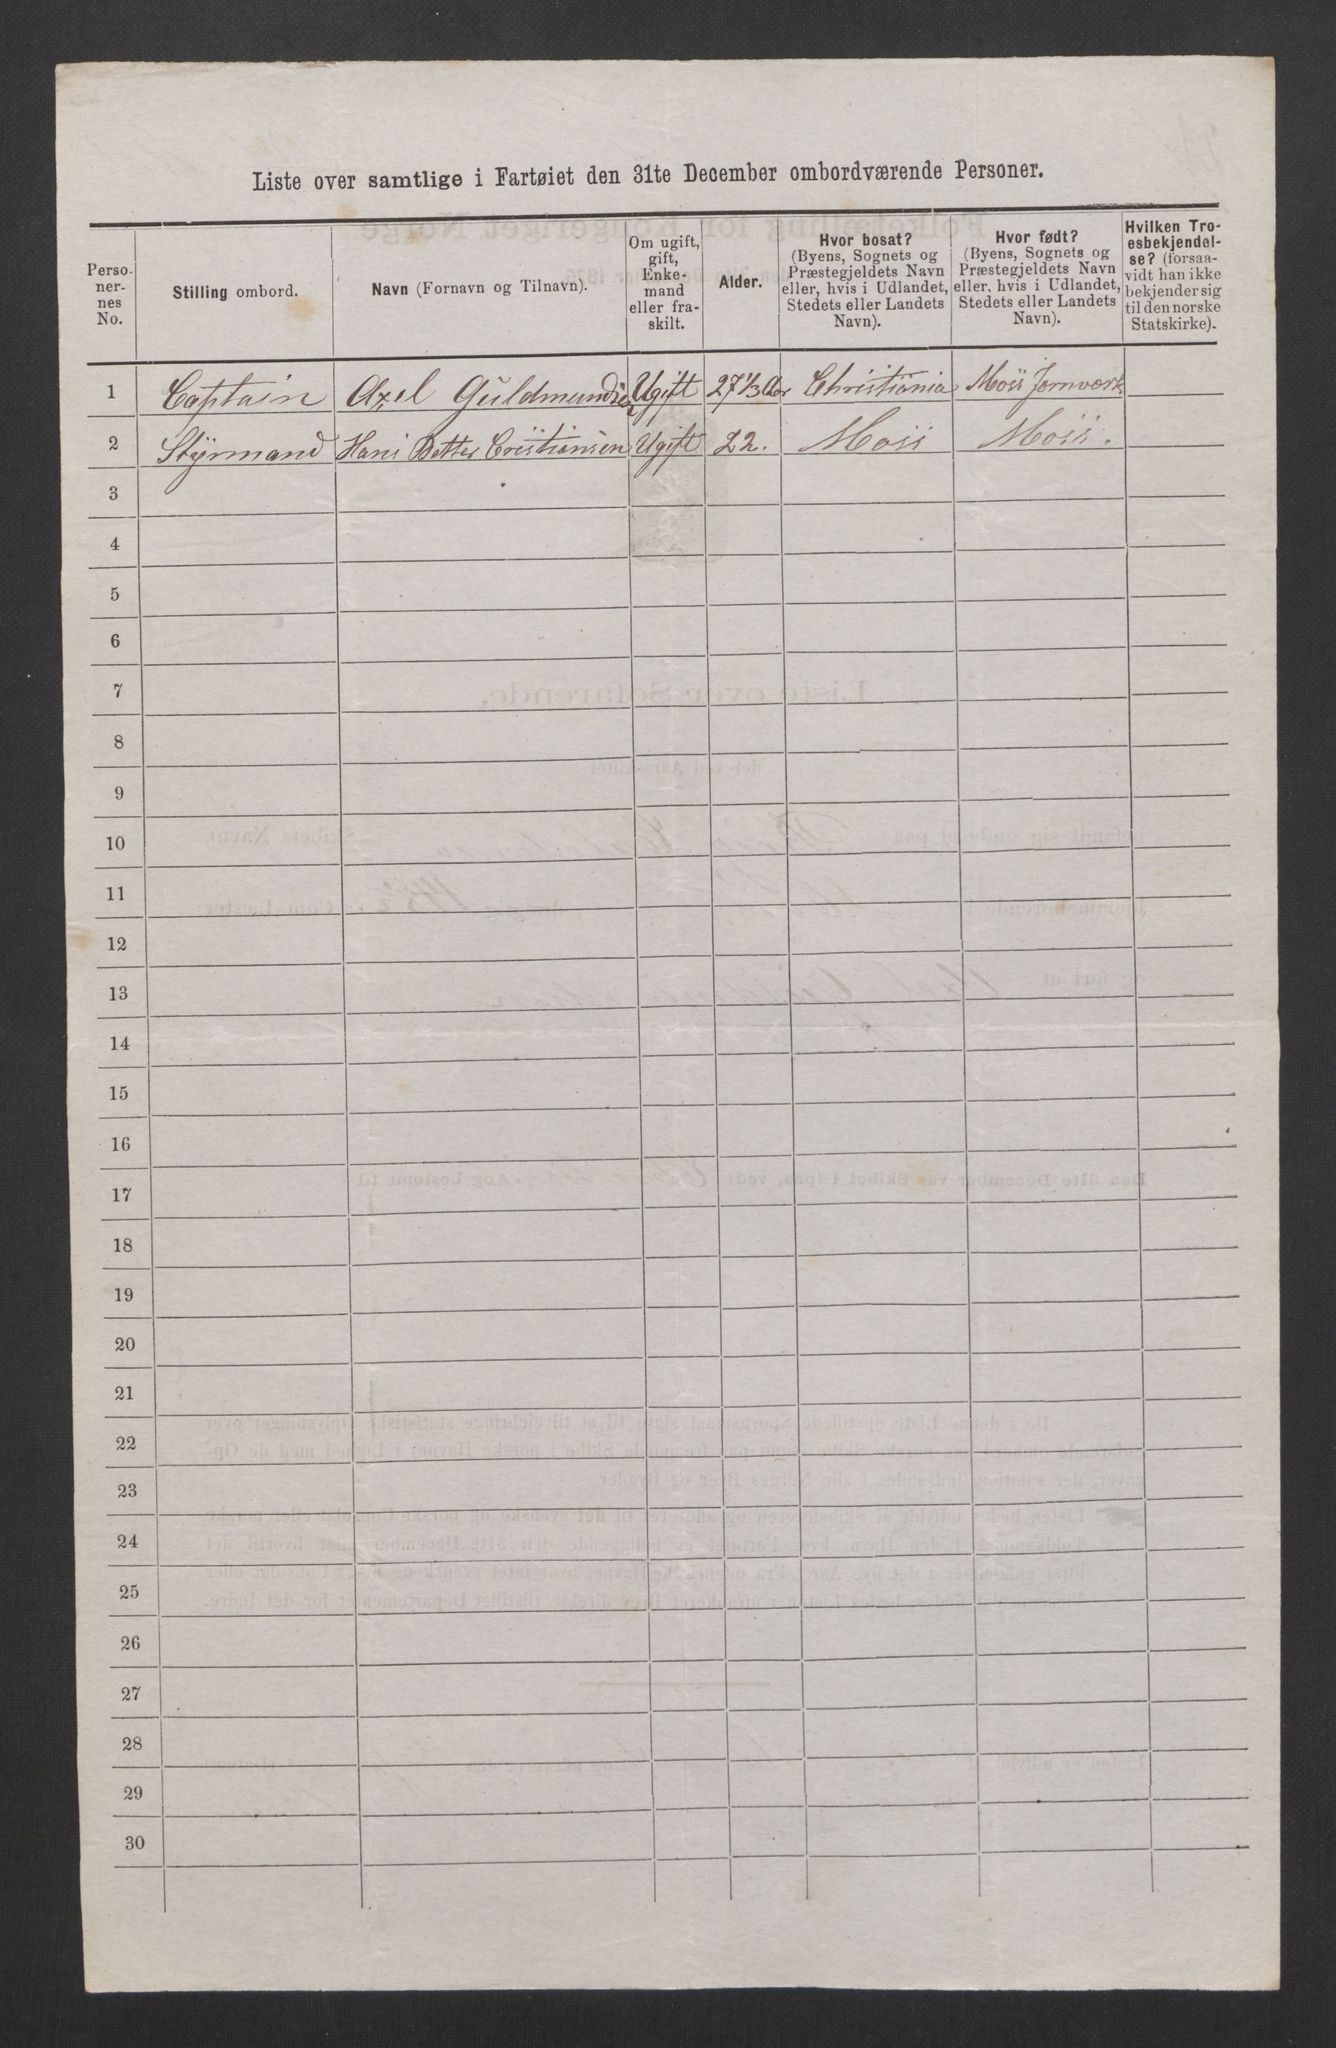 Liste over samtlige i Fartøiet den 31te December ombordværende Personer.
Perso-
ner-
nes
No.
Stilling ombord.
Navn (Fornavn og Tilnavn).
Om ugift,
gift,
Enke-
mand
eller fra-
skilt.
Alder.
Hvor bosat?
(Byens, Sognets og
Præstegjeldets Navn
eller, hvis i Udlandet,
Stedets eller Landets
Navn).
Hvor født?
(Byens, Sognets og
Præstegjeldets Navn
eller, hvis i Udlandet,
Stedets eller Landets
Navn).
Hvilken Tro-
esbekjendel-
se? (forsaa-
vidt han ikke
bekjender sig
til den norske
Statskirke).
1 Captain Axel Guldmundsen Ugift 27 1/3 Aar Christiania Moss Jernværk
2 Styrmand Hans Petter Cristiansen Ugift 22. Moss Moss.
3
4
5
6
7
8
9
10
11
12
13
14
15
16
17
18
19
20
21
22
23
24
25
26
27
28
29
30